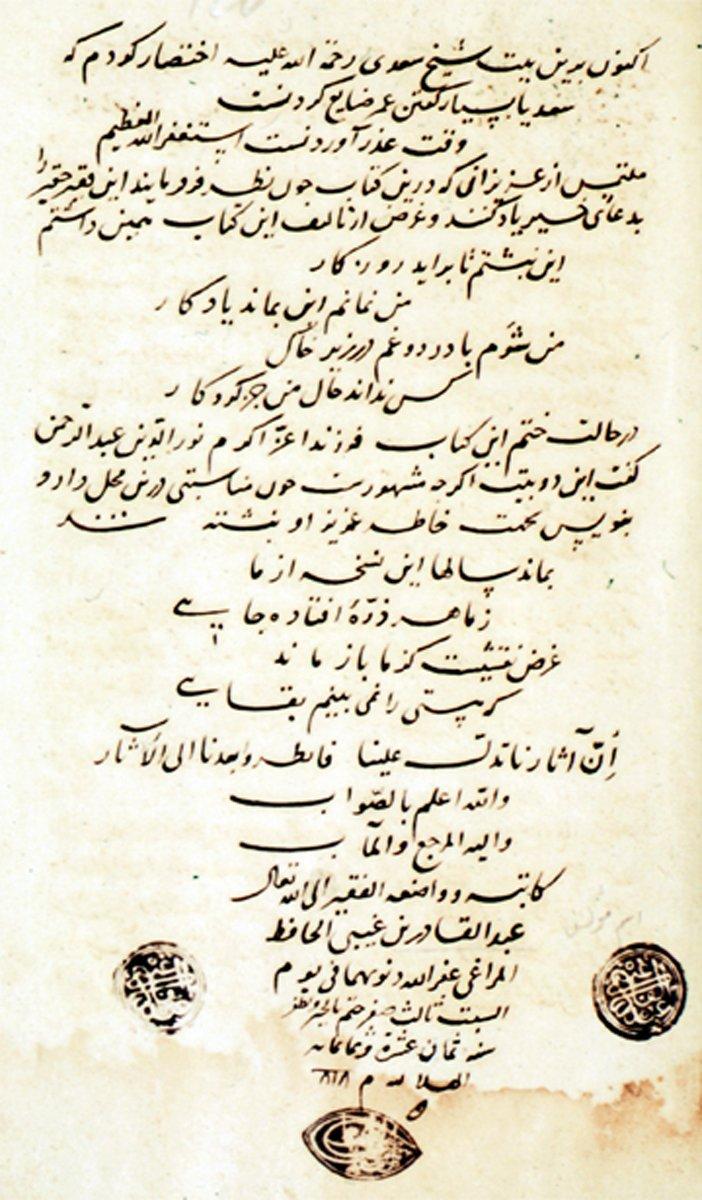 اکنون برین بیت شیخ سعدی رحمة الله علیه اختصار کردم که
سعدیا بسیار گفتن عمر ضایع کردنست
وقت عذر آوردنست استغفر الله العظیم
ملتمس از عزیزانی که درین کتاب چون نظر فرمایند این فقیر حقیر را
بدعای خیر یاد کنند و غرض از تالیف این کتاب همین داشتم
این نبشتم تا براید روزگار
من نمانم این بماند یادگار
من شوم با درد و غم در زیر خاک
کس نداند حال من جز کردگار
در حالت ختم این کتاب فرزند اعز اکرم نور الدین عبد الرحمن
گفت این دو بیت اگرچه مشهورست چون مناسبتی درین محل دارد
بنویس بجهت خاطر عزیز او نبشته شد
بماند سالها این نسخه از ما
ز ما هر ذرّهٔ افتاده جایی
غرض نقشیست کز ما باز ماند
که هستی را نمی بینم بقایی
اُنّ آثارنا تدل علینا فانظروا بعدنا الی الآثار
والله اعلم بالصّواب
والیه المرجع والمآب
کاتبه و واضعه الفقیر الی الله تعالی
عبد القادر بن غیبی الحافظ
المراغی غفر الله ذنوبهما فی یوم
السبت ثالث صفر ختم بالخیر والظفر
سنه ثمان عشرة وثمانمائه
الهلالیه م ۸۱۸